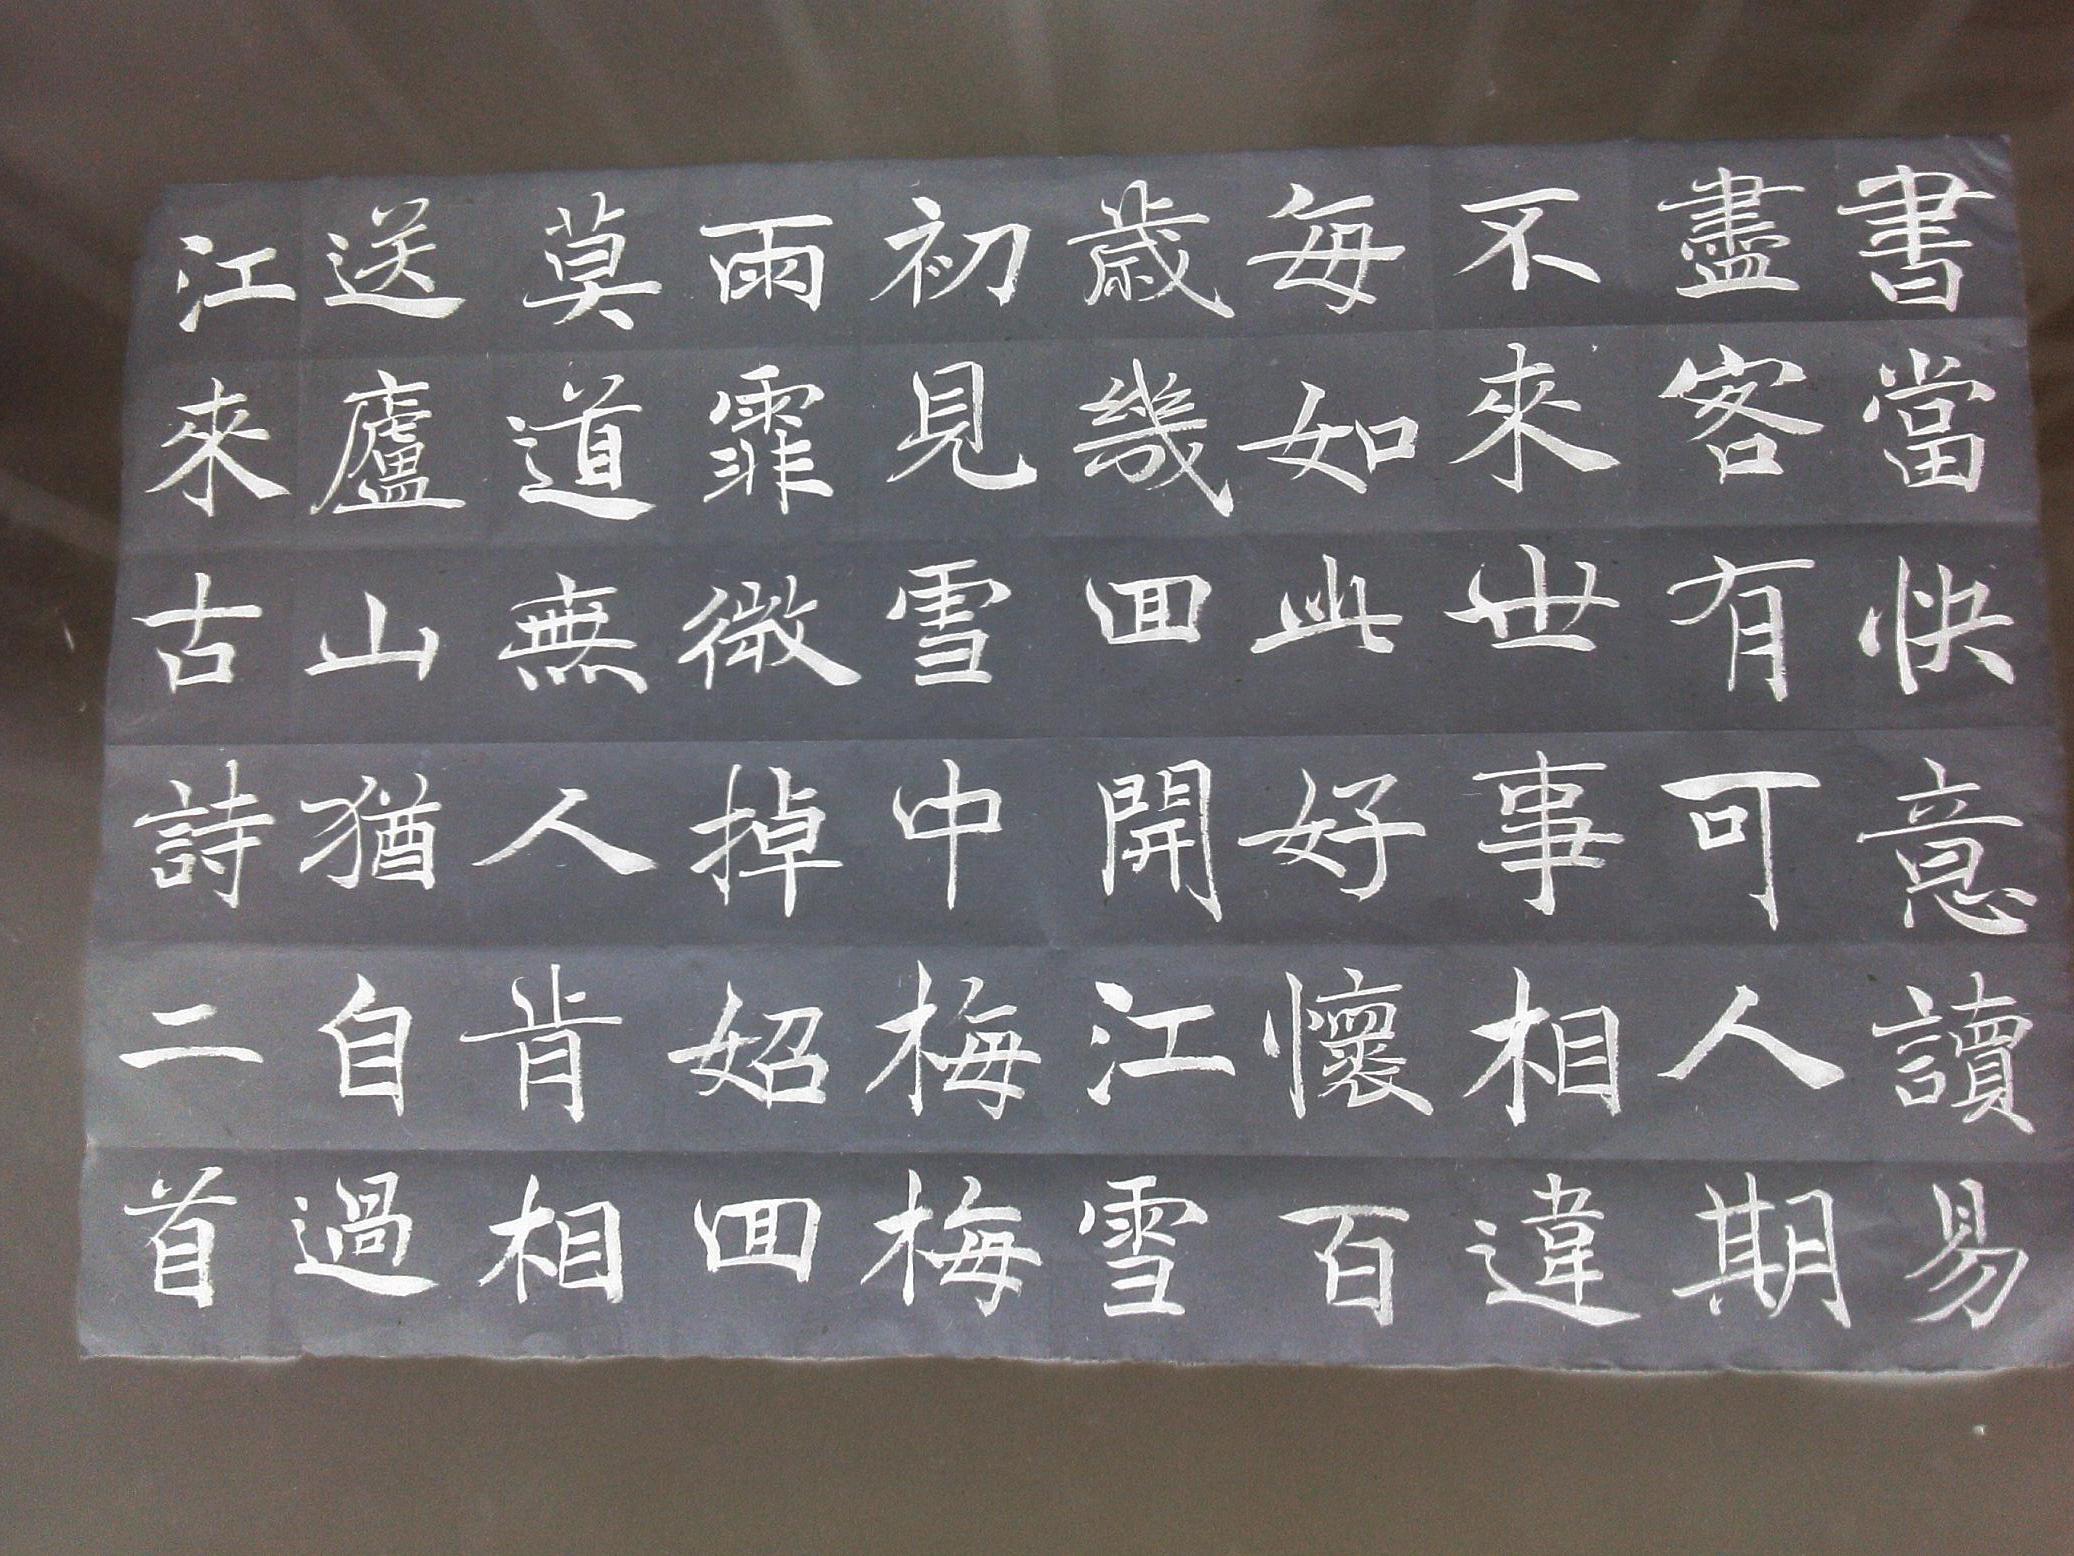 書當快意讀易
盡客有可人期
不來世事相違
每如此好懷百
歲幾回開江雪
初見雪中梅梅
雨霏微掉始回
莫道無人肯相
送廬山猶自過
江來古詩二首